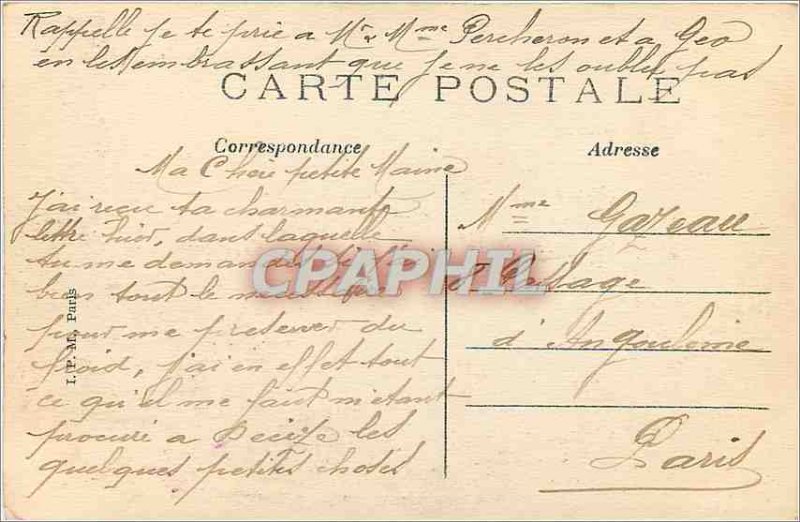 Rappelle je te prie a Mr & Mme Percheron et a Geo
en les embrassant que je ne les oublie pas
CARTE POSTALE
Correspondance
Adresse
Ma Chère petite Maine
J'ai reçu ta charmante
lettre hier, dans laquelle
tu me demandes si j'ai
bien tout le nécessaire
pour me préserver du
froid, j'ai en effet tout
ce qu'il me faut m'étant
procuré a Decize les
quelques petites choses
Mme Gazeau
8 Passage
d'Angoulème
Paris
I. P. M., Paris
CPAPHIL